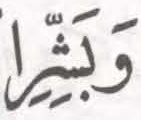 وَبَشِّرِا